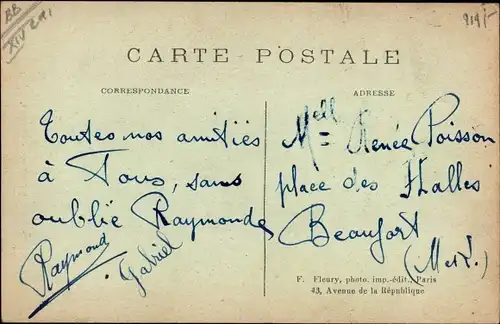 BB
XIV 291
919/-
CARTE POSTALE
CORRESPONDANCE
ADRESSE
Toutes nos amitiés
à Tous, sans
oublié Raymonde
Raymond
Gabriel
Melle Renée Poisson
place des Halles
Beaufort
(M et L.)
F. Fleury, photo. imp.-édit., Paris
43, Avenue de la République